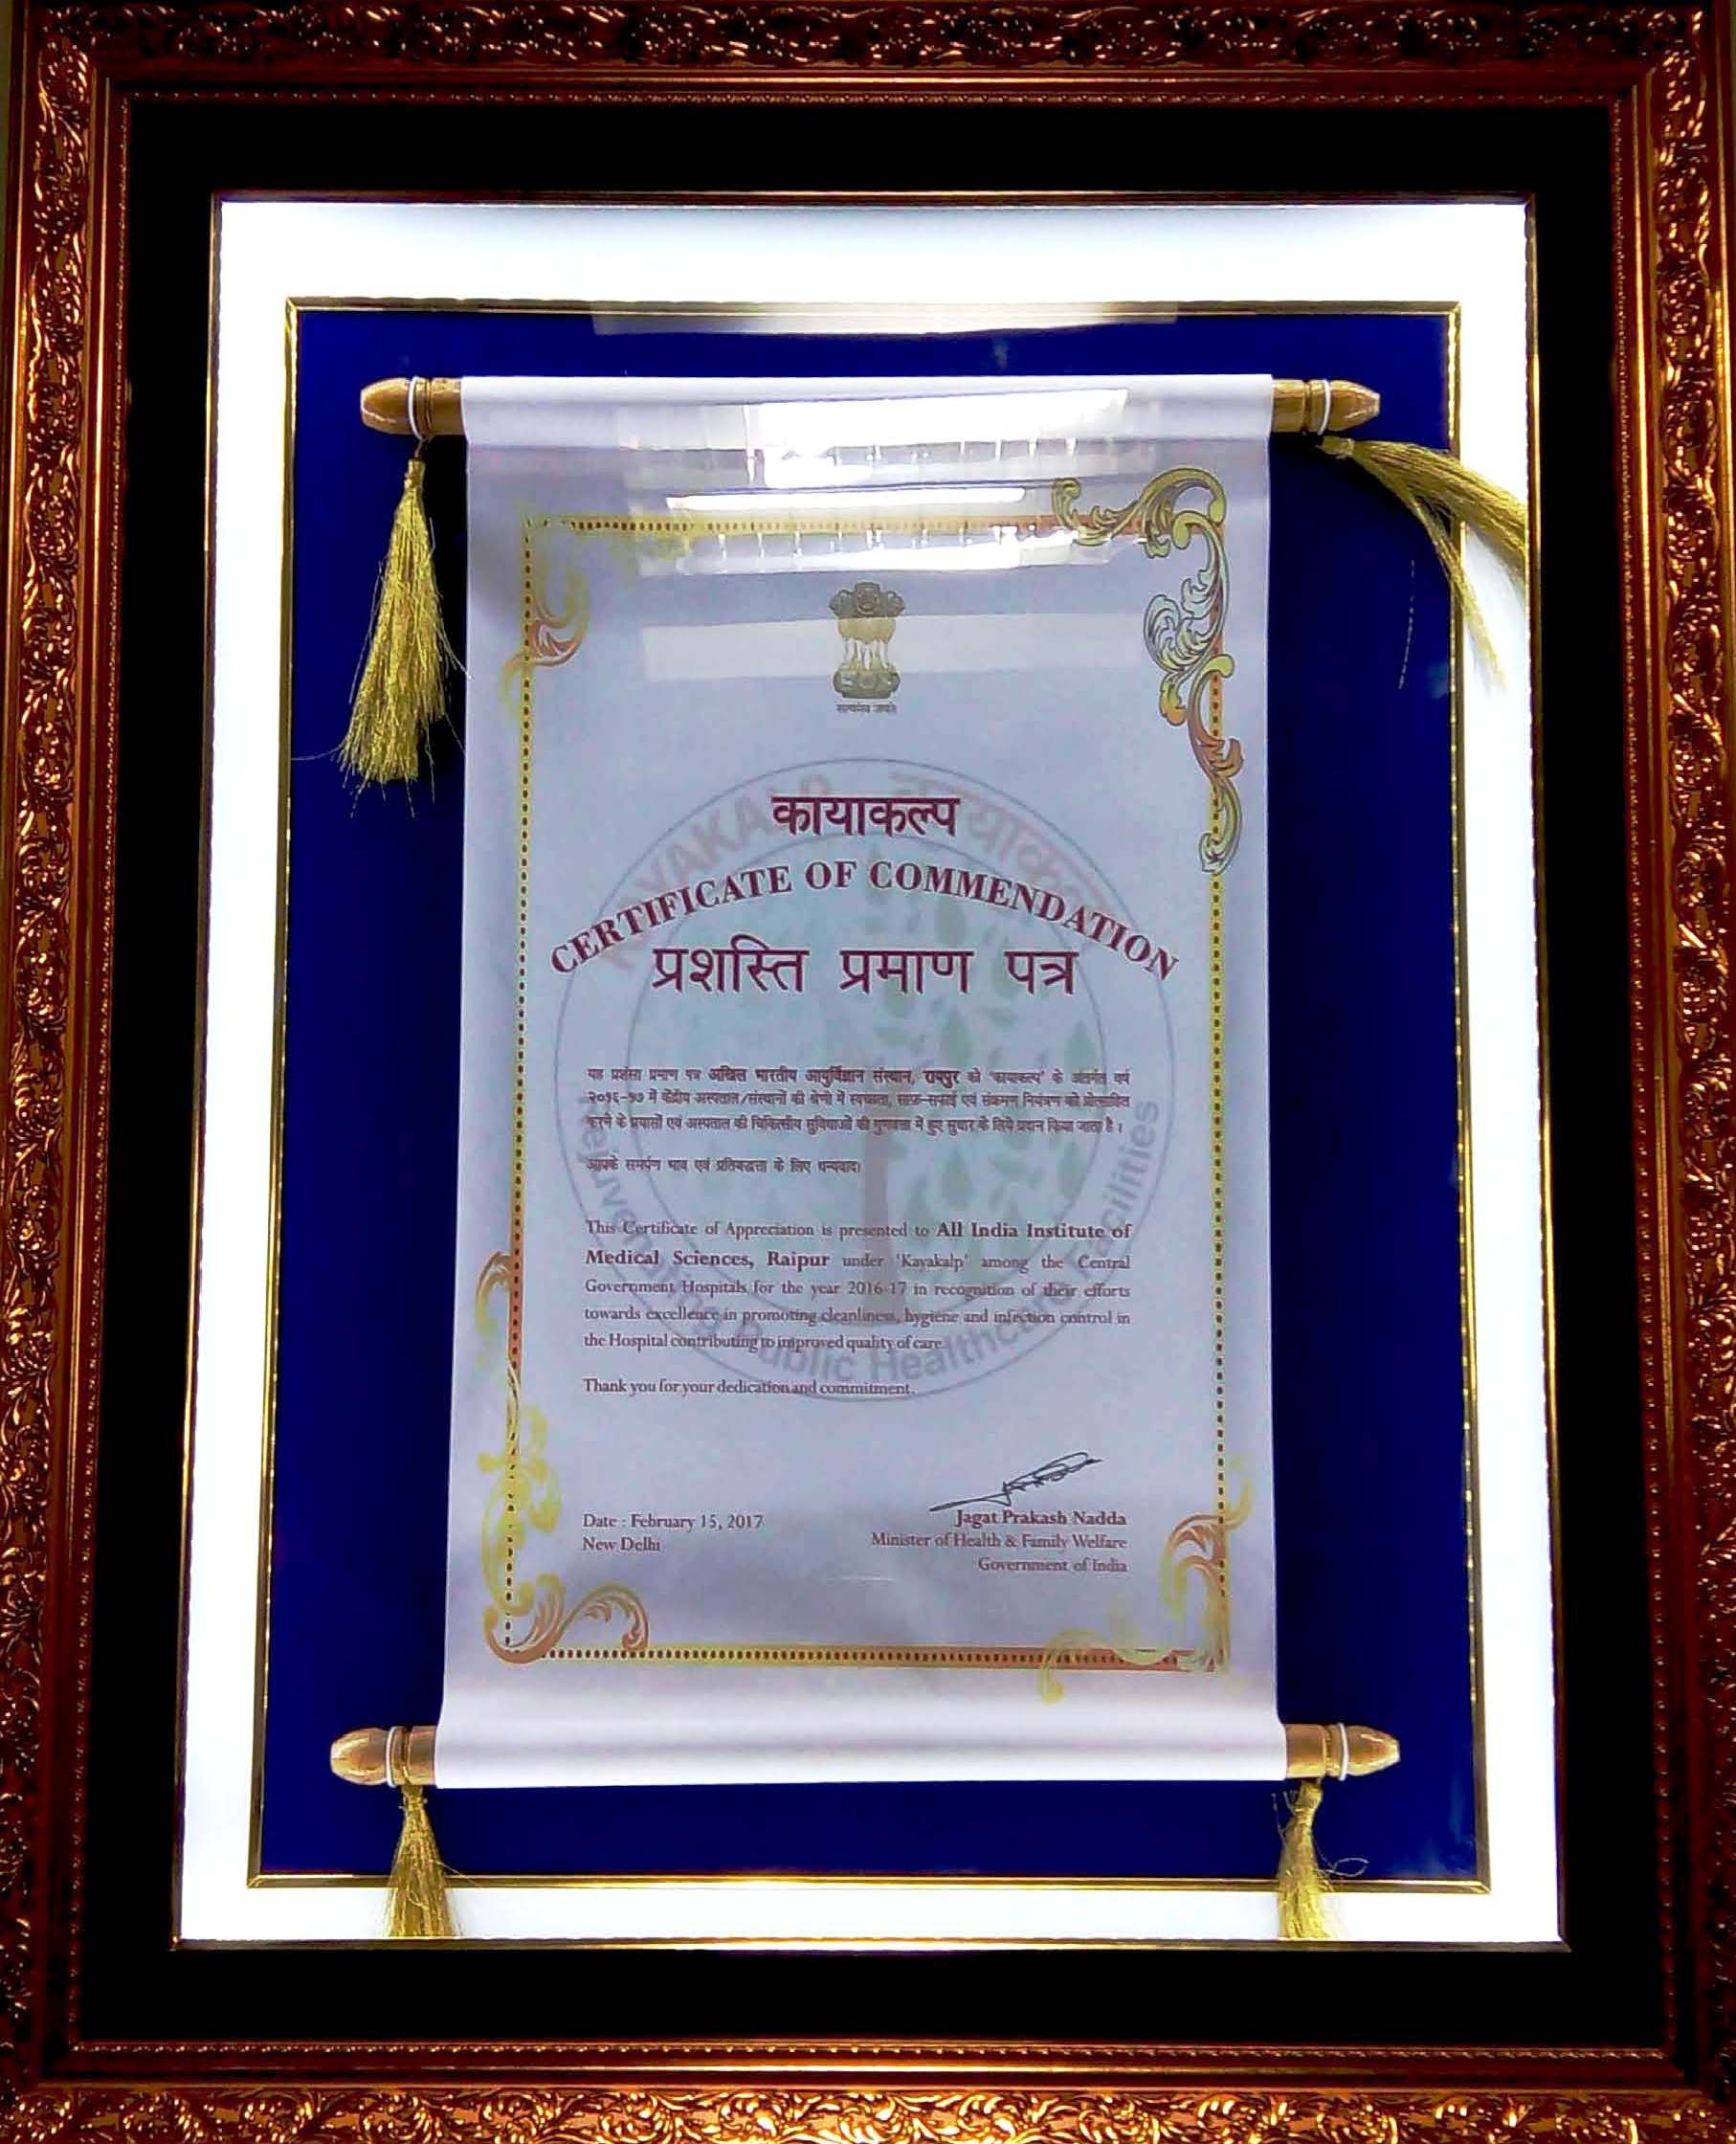 सत्यमेव जयते
कायाकल्प
CERTIFICATE OF COMMENDATION
प्रशस्ति प्रमाण पत्र
यह प्रशंसा प्रमाण पत्र अखिल भारतीय आयुर्विज्ञान संस्थान, रायपुर को 'कायाकल्प' के अंतर्गत वर्ष
२०१६-१७ में केंद्रीय अस्पताल/संस्थानों की श्रेणी में स्वच्छता, साफ़-सफाई एवं संक्रमण नियंत्रण को प्रोत्साहित
करने के प्रयासों एवं अस्पताल की चिकित्सीय सुविधाओं की गुणवत्ता में हुए सुधार के लिये प्रदान किया जाता है।
आपके समर्पण भाव एवं प्रतिबद्धता के लिए धन्यवाद।
This Certificate of Appreciation is presented to All India Institute of
Medical Sciences, Raipur under 'Kayakalp' among the Central
Government Hospitals for the year 2016-17 in recognition of their efforts
towards excellence in promoting cleanliness, hygiene and infection control in
the Hospital contributing to improved quality of care.
Thank you for your dedication and commitment.
Date : February 15, 2017
New Delhi
Jagat Prakash Nadda
Minister of Health & Family Welfare
Government of India